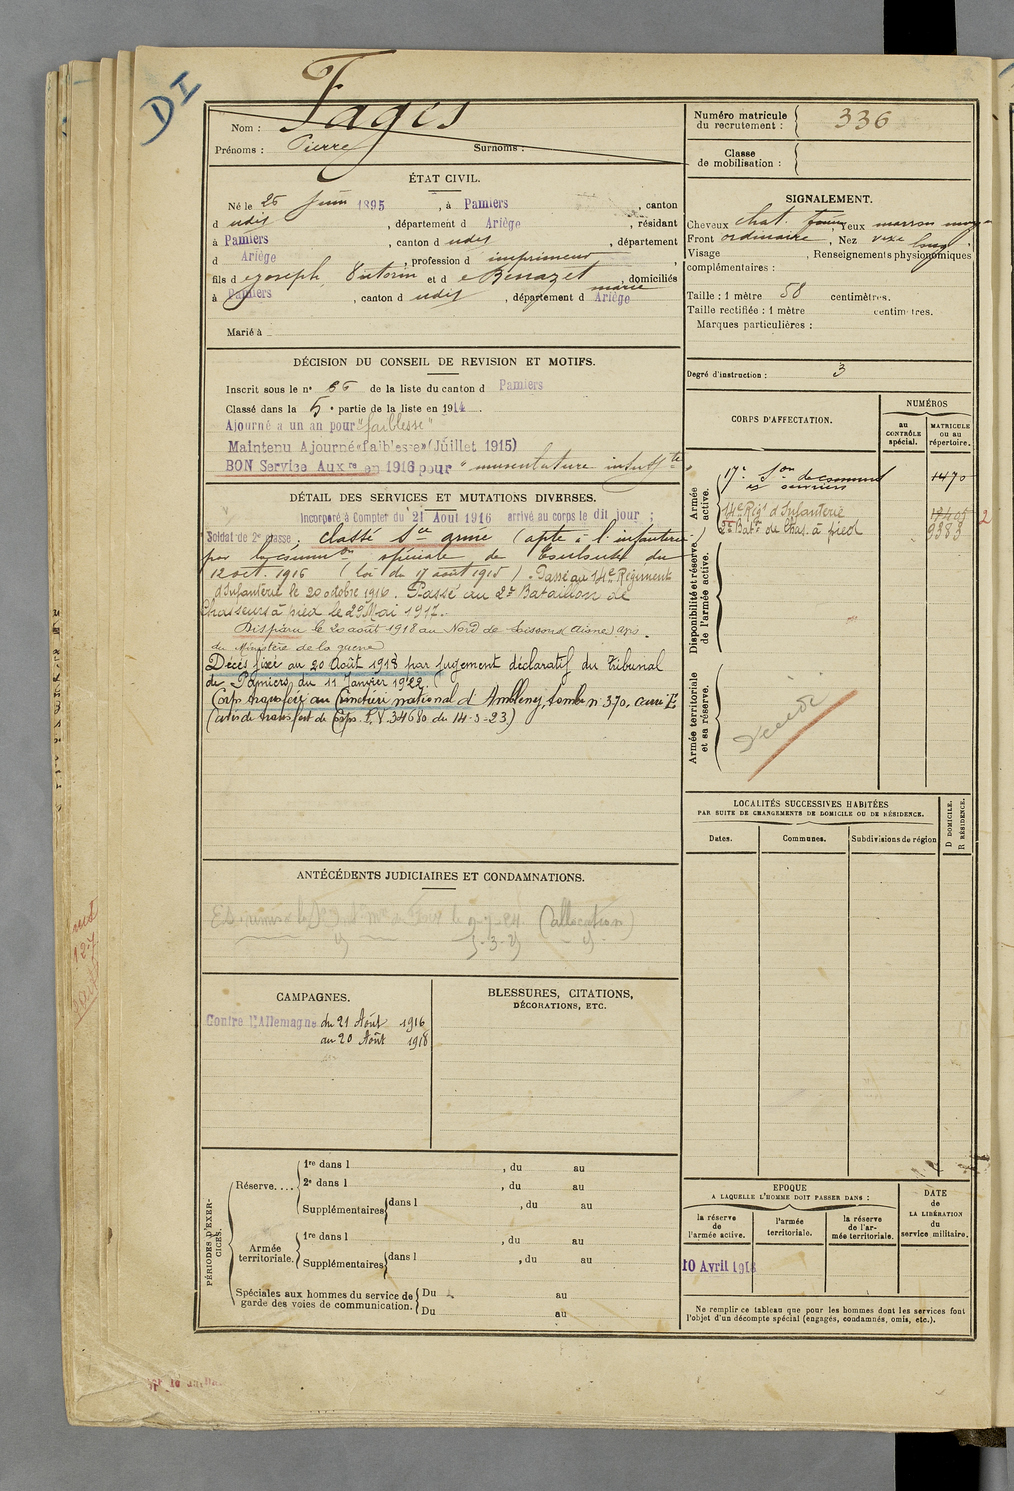 DI
Nom : Fages
Prénoms : Pierre Surnoms :
Numéro matricule du recrutement : 336
Classe de mobilisation :
ÉTAT CIVIL.
Né le 26 Juin 1895, à Pamiers, canton
d udit, département d Ariège, résidant
à Pamiers, canton d udit, département
d Ariège, profession d imprimeur
fils d e Joseph, et d e Benazet marie, domiciliés
à Pamiers, canton d udit, département d Ariège
Marié à
SIGNALEMENT.
Cheveux chat. Yeux marron
Front ordinaire, Nez long
Visage , Renseignements physionomiques
complémentaires :
Taille : 1 mètre 58 centimètres.
Taille rectifiée : 1 mètre centimètres.
Marques particulières :
Degré d'instruction : 3
DÉCISION DU CONSEIL DE REVISION ET MOTIFS.
Inscrit sous le n° 36 de la liste du canton d Pamiers
Classé dans la 5e partie de la liste en 1914.
Ajourné a un an pour "faiblesse"
Maintenu Ajourné "faiblesse" (Juillet 1915)
BON Service Auxre en 1916 pour "musculature insuffte"
DÉTAIL DES SERVICES ET MUTATIONS DIVERSES.
Incorporé à Compter du 21 Aout 1916 arrivé au corps le dit jour ;
Soldat de 2e classe ; classé Sce armé (apte à l'infanterie)
par la common spéciale de Toulouse du
12 oct. 1916 (loi du 17 août 1915). Passé au 14e Régiment
d'Infanterie le 20 octobre 1916. Passé au 2e Bataillon de
Chasseurs à pied le 29 Mai 1917.
Disparu le 20 août 1918 au Nord de Soissons (Aisne) avis
du Ministère de la guerre
Décès fixé au 20 Août 1918 par jugement déclaratif du Tribunal
de Pamiers du 11 Janvier 1922.
Corps transféré au Cimetière national d'Ambleny, tombe n° 370, carré E
(avis de transfert de Corps. P.V. 34680 du 14-3-23.)
CORPS D'AFFECTATION.
NUMÉROS
au CONTRÔLE spécial.
MATRICULE ou au répertoire.
Armée active.
17e Son de commis et ouvriers 1470
14e Régt d'Infanterie
2e Batn de Chas. à pied 9383
Disponibilité et réserve de l'armée active.
Armée territoriale et sa réserve.
Décédé
LOCALITÉS SUCCESSIVES HABITÉES
PAR SUITE DE CHANGEMENTS DE DOMICILE OU DE RÉSIDENCE.
Dates. Communes. Subdivisions de région
D DOMICILE.
R RÉSIDENCE.
ANTÉCÉDENTS JUDICIAIRES ET CONDAMNATIONS.
(allocation)
CAMPAGNES.
Contre l'Allemagne du 21 Août 1916
au 20 Août 1918
BLESSURES, CITATIONS,
DÉCORATIONS, ETC.
PÉRIODES D'EXERCICES.
Réserve....
1re dans l , du au
2e dans l , du au
Supplémentaires dans l , du au
Armée territoriale.
1re dans l , du au
Supplémentaires dans l , du au
Spéciales aux hommes du service de garde des voies de communication.
Du au
Du au
EPOQUE
A LAQUELLE L'HOMME DOIT PASSER DANS :
la réserve de l'armée active.
l'armée territoriale.
la réserve de l'armée territoriale.
DATE de LA LIBÉRATION du service militaire.
10 Avril 1918
Ne remplir ce tableau que pour les hommes dont les services font
l'objet d'un décompte spécial (engagés, condamnés, omis, etc.).